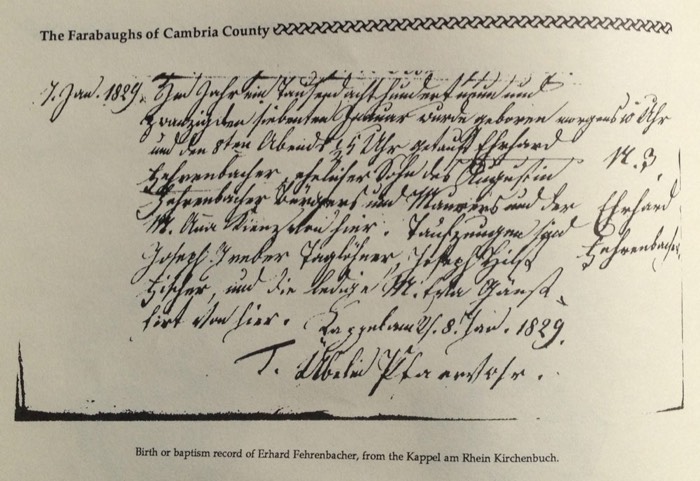 The Farabaughs of Cambria County
7. Jan. 1829. Im Jahr ein Tausend acht hundert neun und
zwanzig den siebenten Januar wurde geboren morgens 10 Uhr
und den 8ten Abends 5 Uhr getauft Ehrhard
Fehrenbacher, ehelicher Sohn des Augustin
N. 3.
Fehrenbacher Bürgers und Maurers und der
Ehrhard
M. Anna Kienz von hier. Taufzeugen sind
Fehrenbacher
Joseph Taglöhner, Joseph
Fischer, und die ledige M. Eva
von hier. Kappel am Rh. 8. Jan. 1829.
T. Übelin Pfarrer
Birth or baptism record of Erhard Fehrenbacher, from the Kappel am Rhein Kirchenbuch.